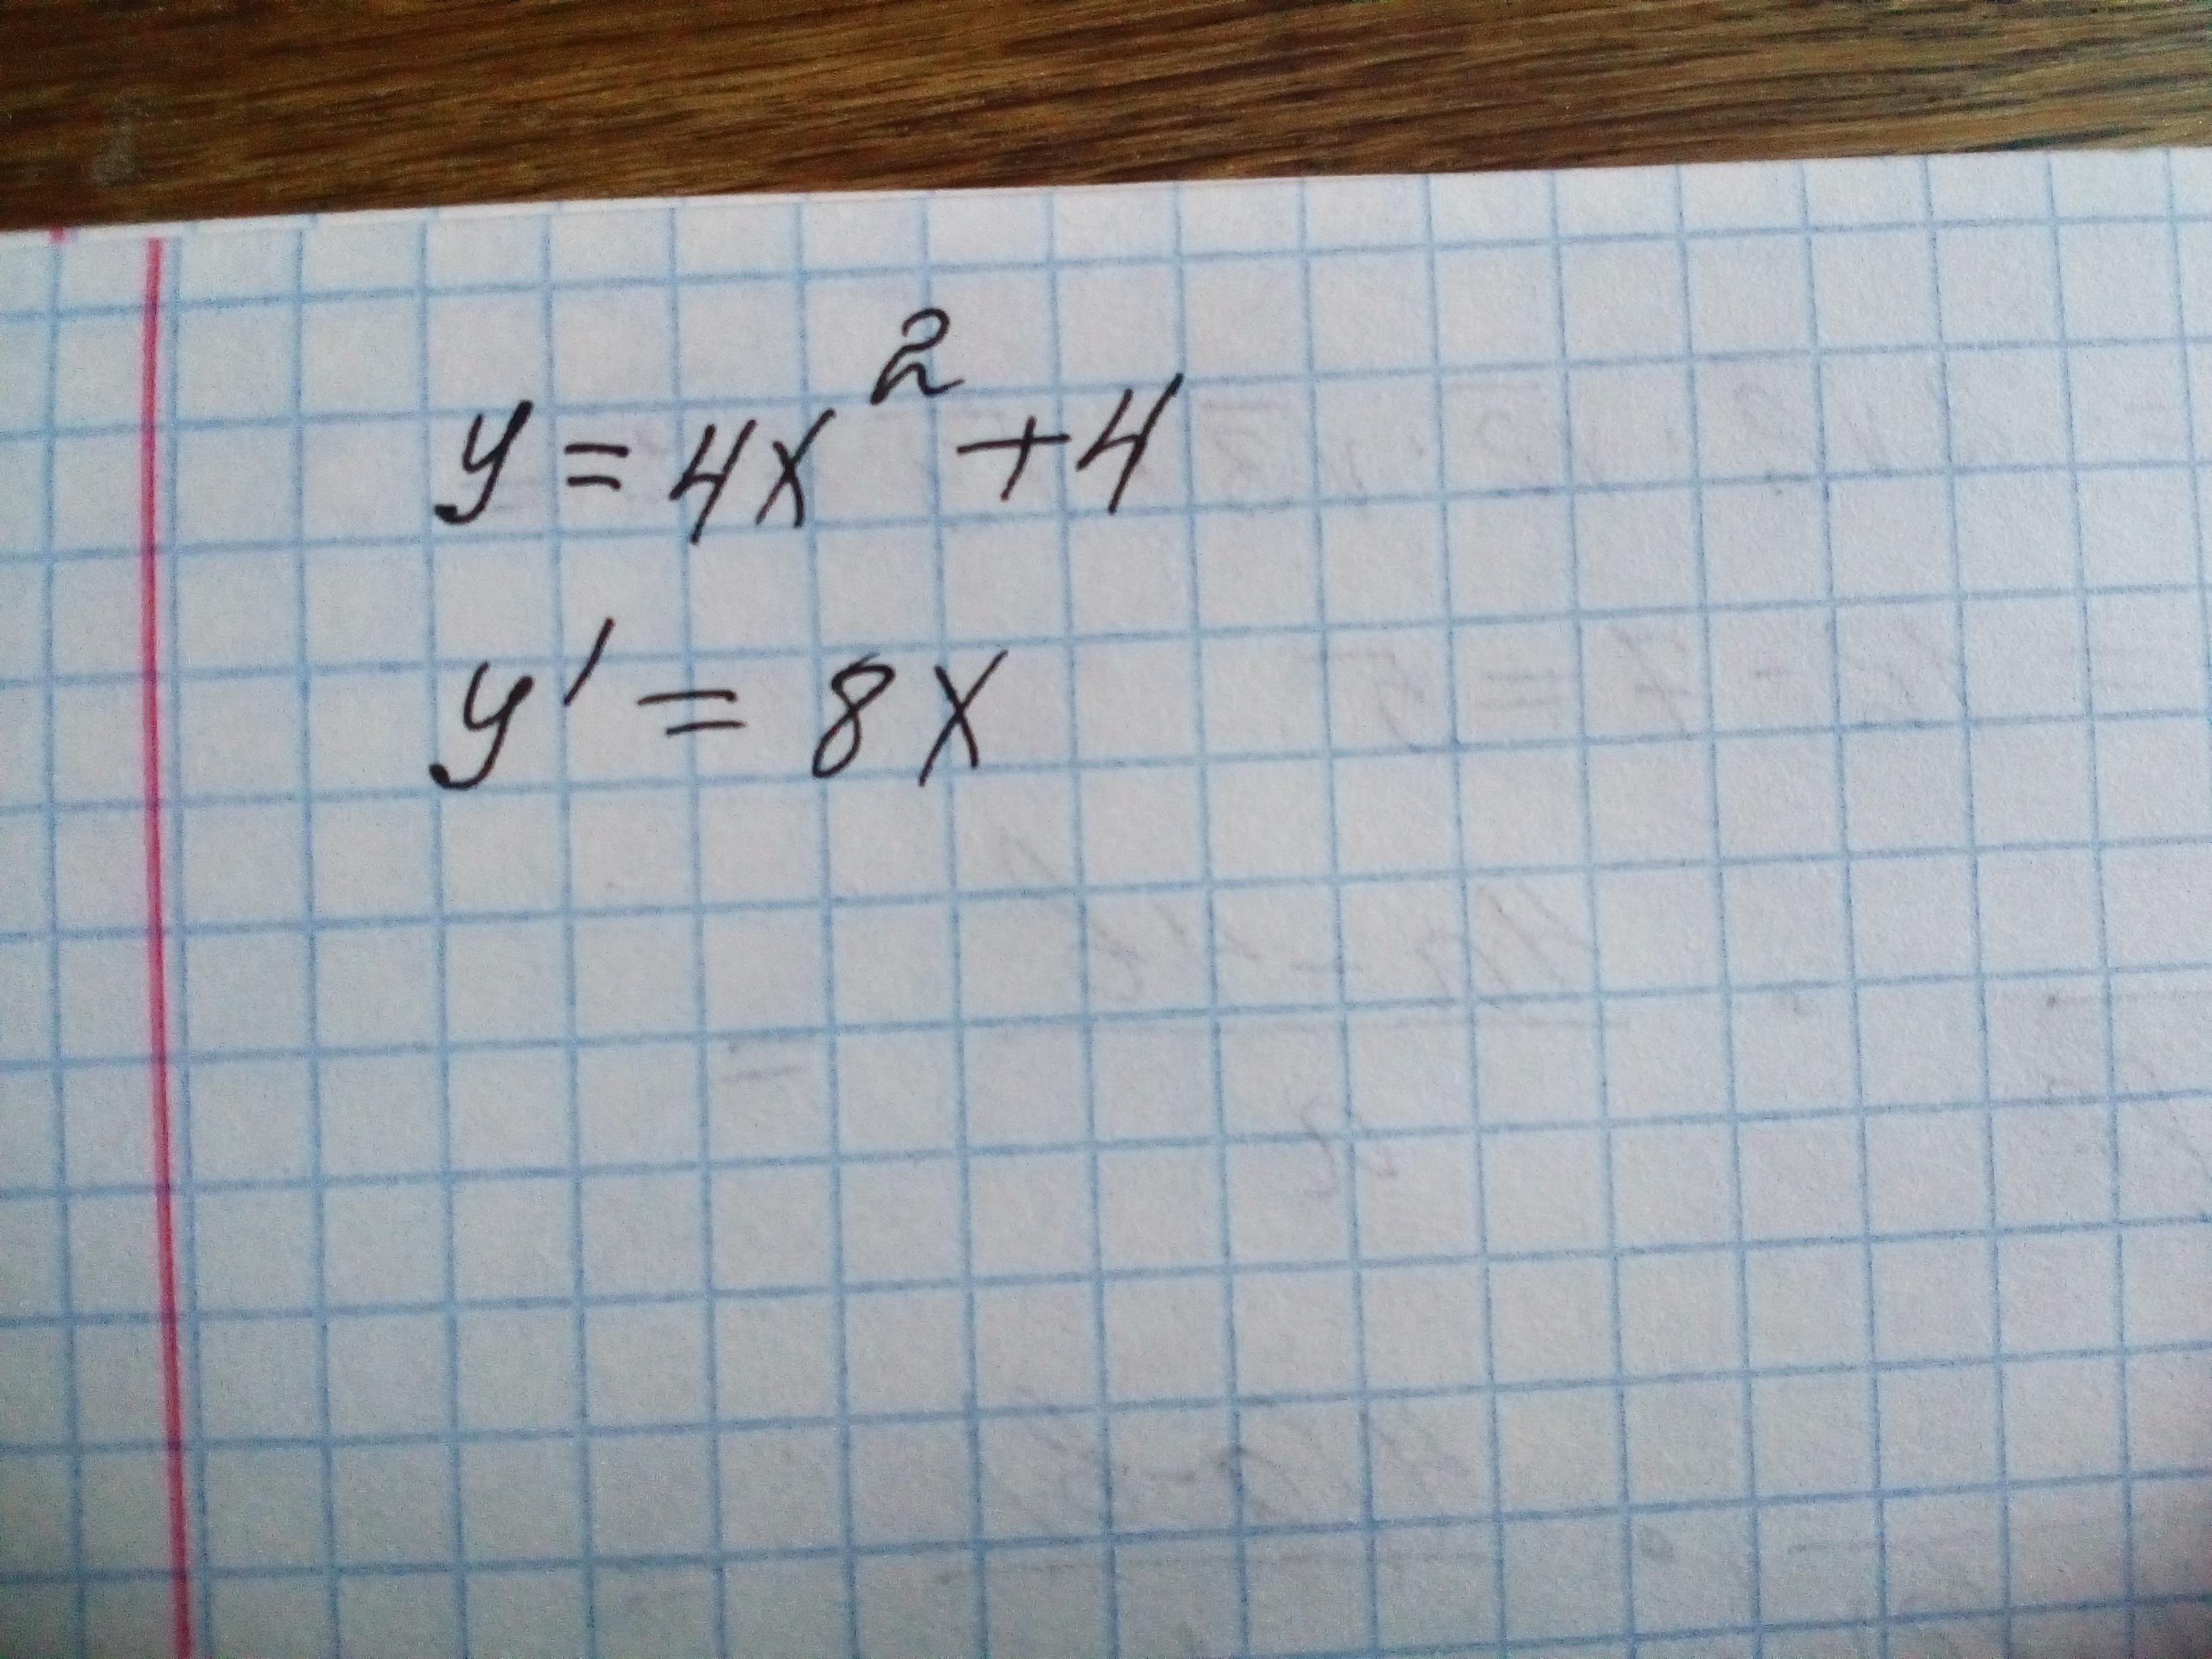 y = 4x² + 4
y' = 8x